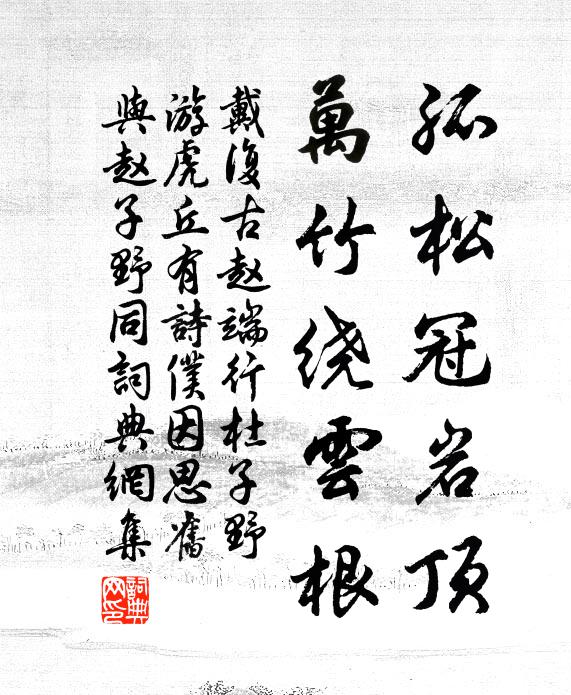 孤松冠岩顶
萬竹绕雲根
戴復古赵端行杜子野
游虎丘有詩僕因思舊
與赵子野同詞典網集
詞典
网印